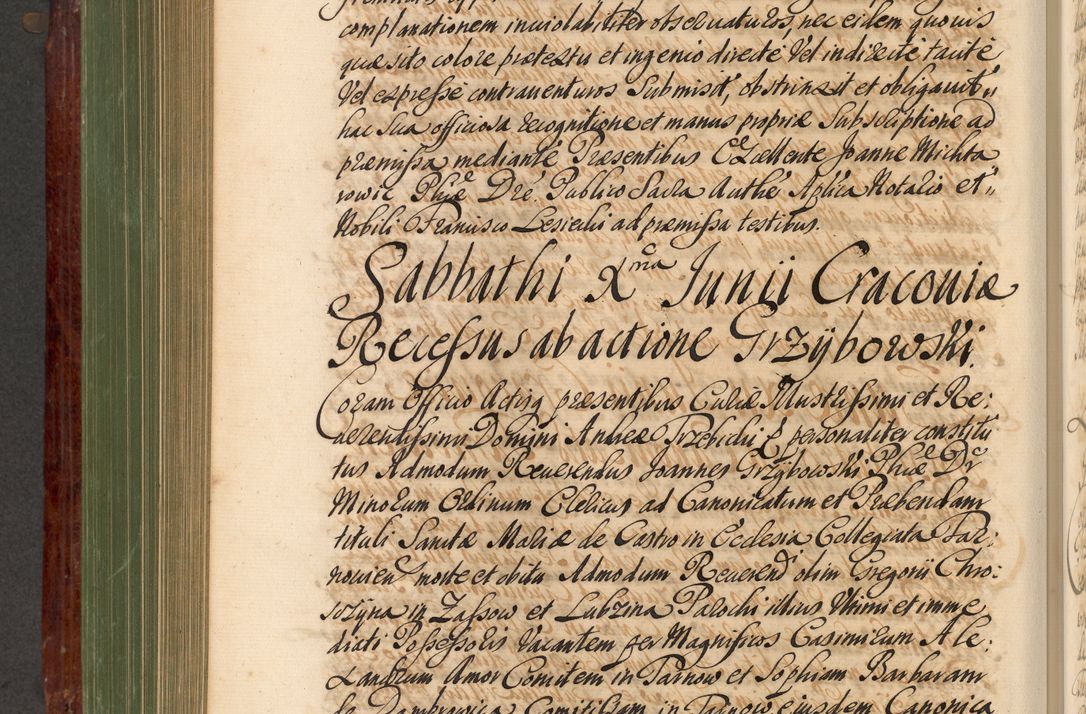 complanationem inuiolabiliter obseruaturos, nec eidem quouis
quæsito colore prætextu et ingenio directé Vel indirecté tacité
Vel expressé contrauenturos Submisit, obstrinxit et obligauit„
hac Sua officiosa recognitione et manus propriæ Subscriptione ad
præmissa mediante Præsentibus Excellente Joanne Michta„
nowic Philæ Dre. Publico Sacra Authe Aplica Notario et„
Nobili Francisco Lesiecki ad præmissa testibus.
Sabbathi Xma Junii Cracouiæ
Recessus ab actione Grzÿbowski.
Coram Officio Actisq præsentibus Curiæ Illustrissimi et Re:
uerendissimi Domini Andreæ Trzebicki E personaliter constitu
tus Admodum Reuerendus Joannes Grzÿbowski Philæ Dr
Minorum Ordinum Clericus ad Canonicatum et Præbendam
tituli Sanctæ Mariæ de Castro in Ecclesia Collegiata Tar:
nouien morte et obitu Admodum Reuerend olim Gregorii Chro:
sczÿna in Zassow et Lubzina Parochi illius Vltimi et imme
diati Possessoris Vacantem per Magnificos Casimirum Ale:
xandrum Amor Comitem in Tarnow et Sophiam Barbaram
de Dambrowica Comitissam in Tarnow eiusdem Canonica